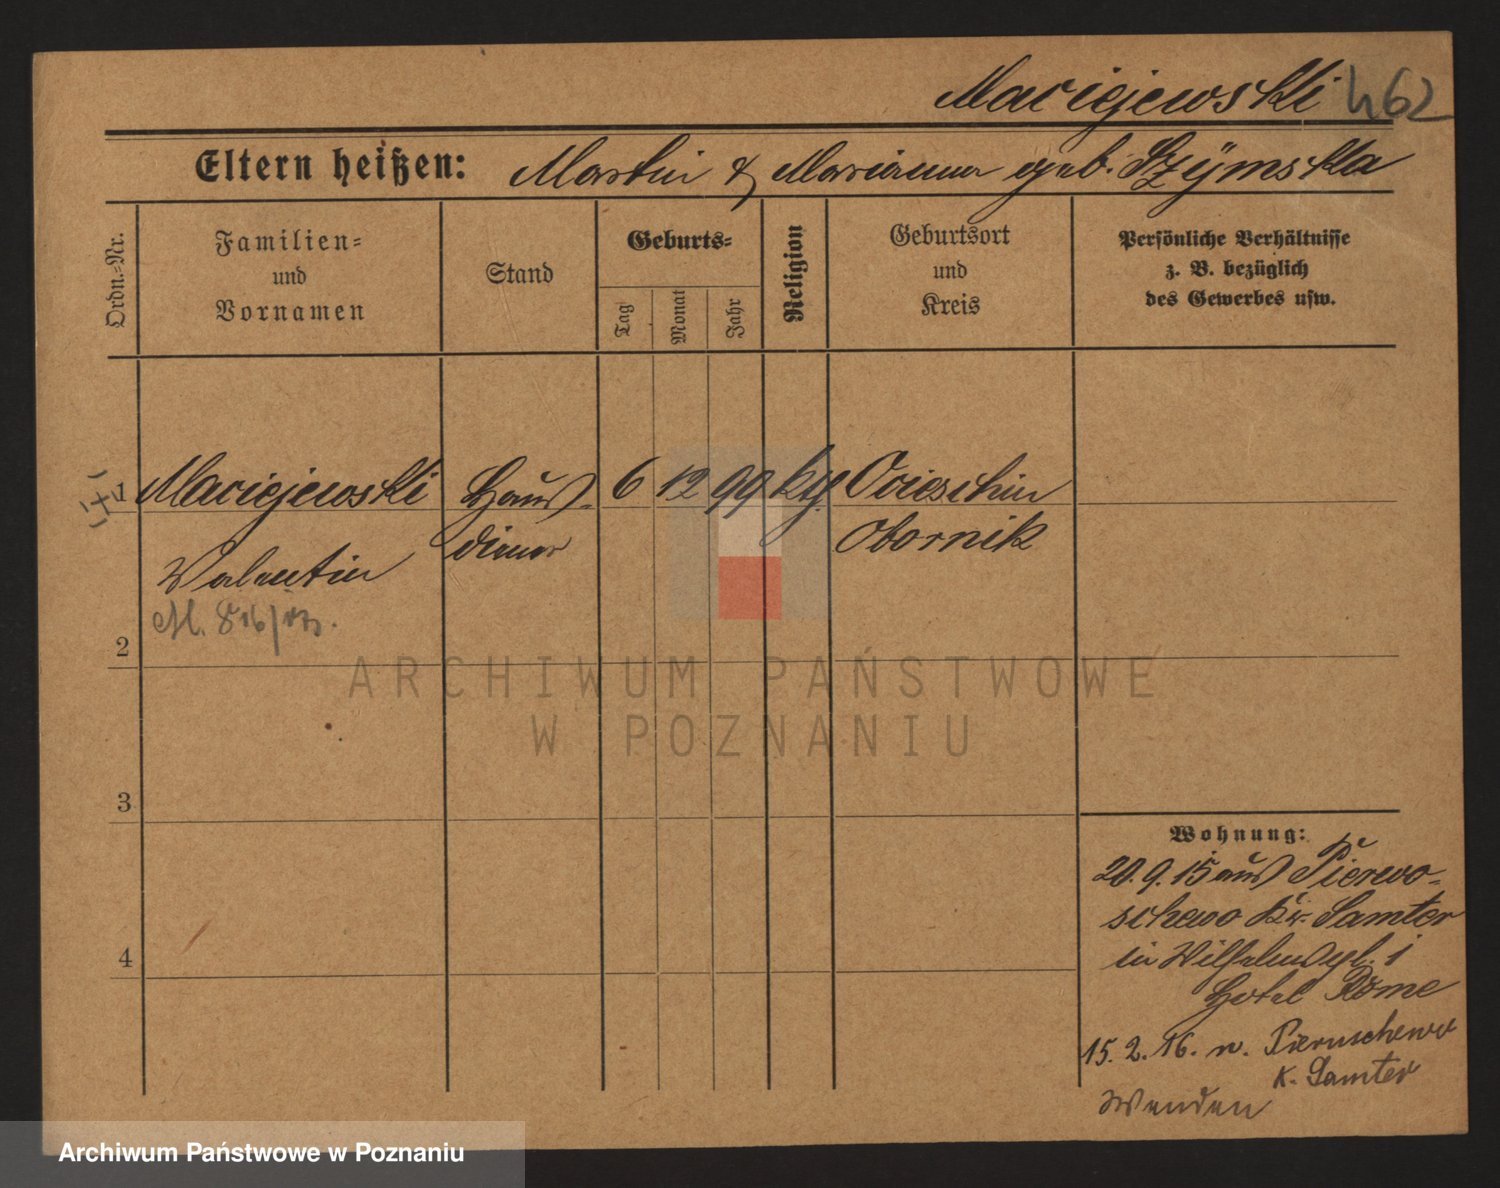 Maciejewski 462
Eltern heißen: Martin & Marianna geb. Szÿmska
Ordn.-Nr.
Familien-
und
Vornamen
Stand
Geburts-
Tag
Monat
Jahr
Religion
Geburtsort
und
Kreis
Persönliche Verhältnisse
z. B. bezüglich
des Gewerbes usw.
1 Maciejewski Haus- 6 12 99 kth. Ocieschin
diener Obornik
Valentin
2
3
4
Wohnung:
20.9.15 aus Pierwo-
schewo Kr. Samter
in Wilhelmspl. 1
Hotel Rome
15.2.16. n. Pierwschewo
K. Samter
Wenden
ARCHIWUM PAŃSTWOWE
W POZNANIU
Archiwum Państwowe w Poznaniu